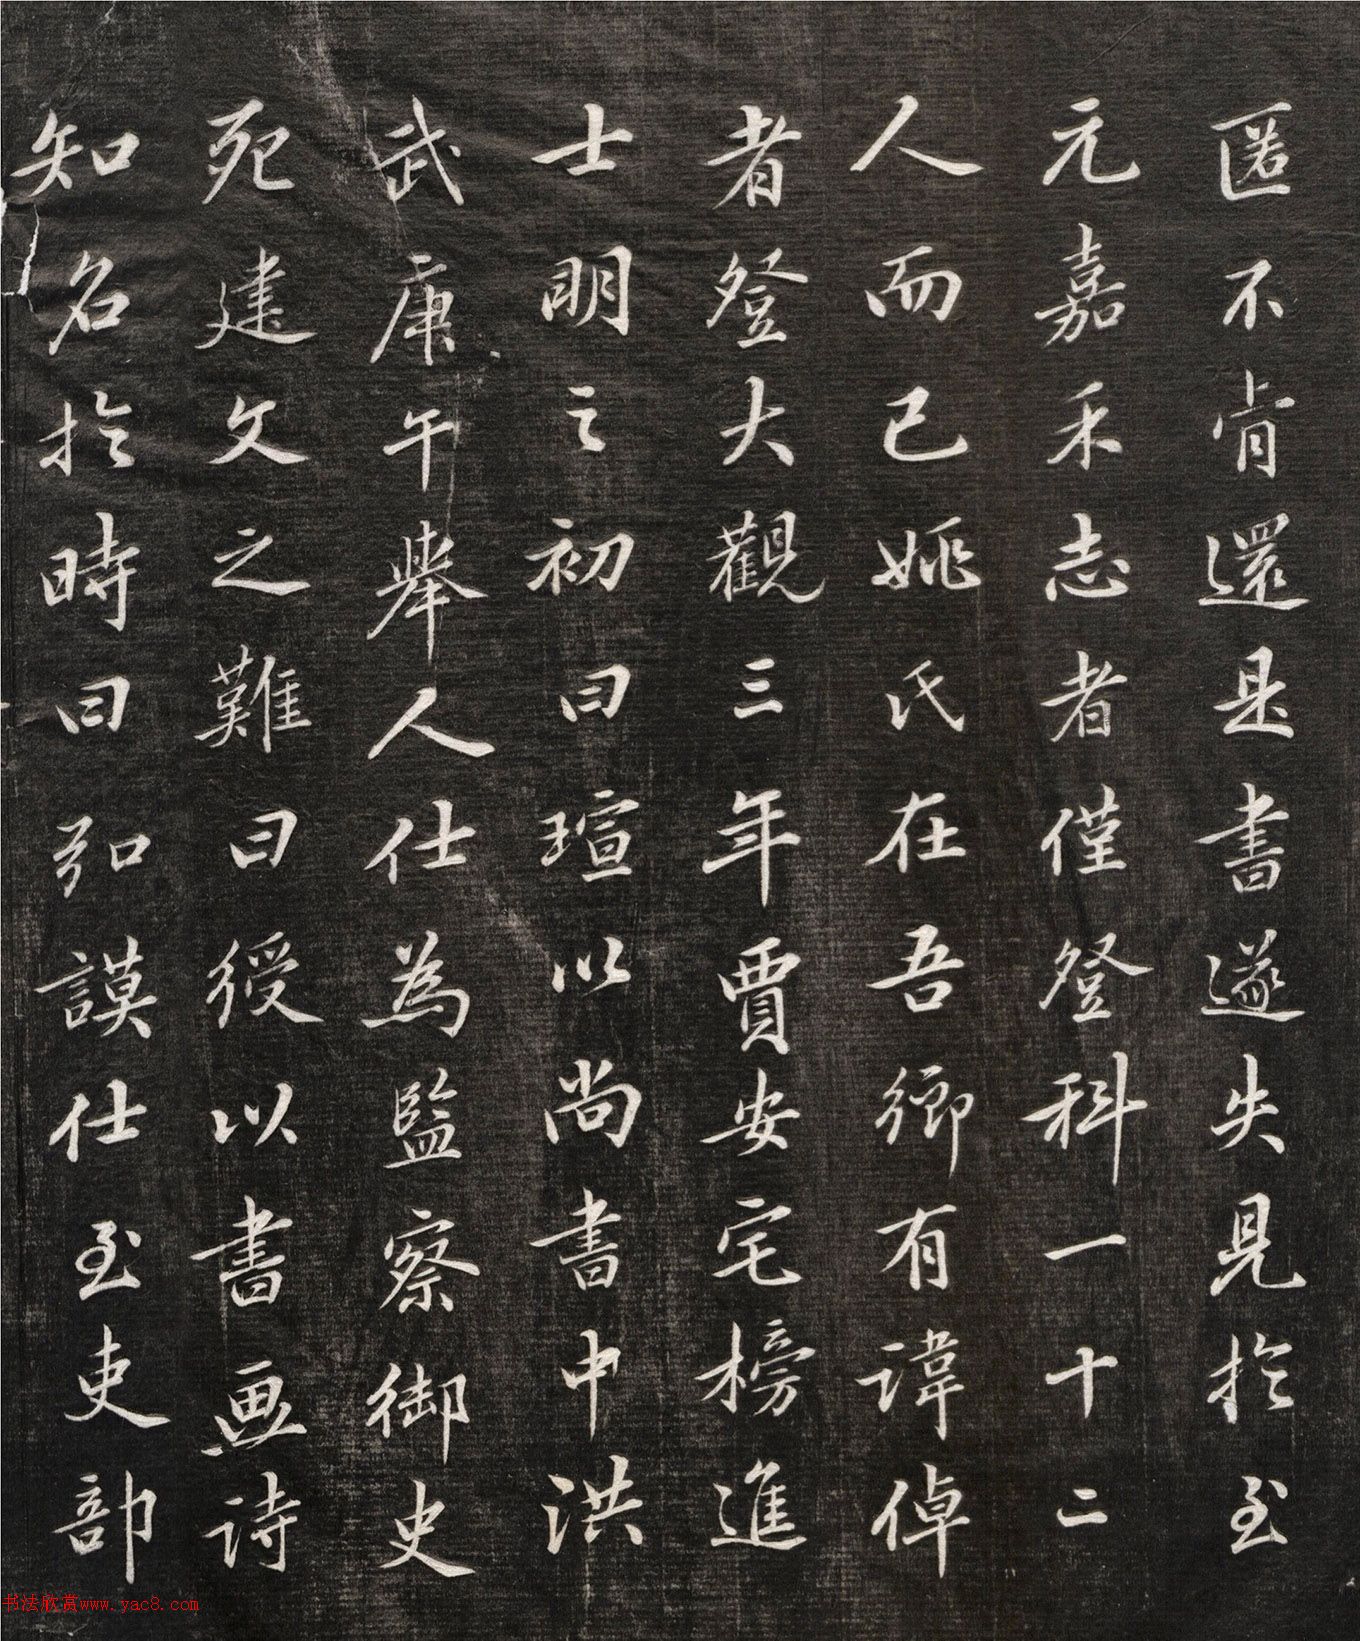 匿不肯還是書遂失見扵至
元嘉禾志者僅登科一十二
人而已姚氏在吾鄉有諱倬
者登大觀三年賈安宅榜進
士明之初曰瑄以尚書中洪
武庚午舉人仕為監察御史
死建文之難曰綬以書画詩
知名扵時曰弘謨仕至吏部
书法欣赏www.yac8.com